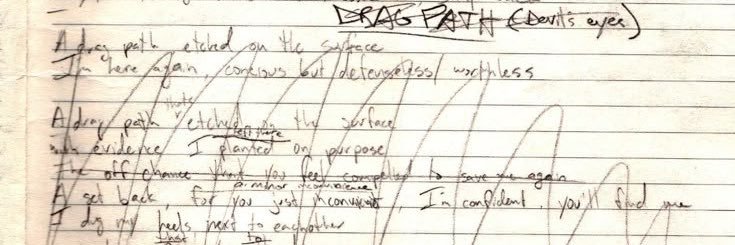 DRAG PATH (Devil's eyes)
A drag path etched on the surface
I'm here again, concious but defenseless/ worthless
A drag path that's etched on the surface
evidence I planted on purpose
left there
The off chance that you feel compelled to save me again
or minor inconvenience
A set back, for you just inconvient, I'm confident you'll find me
I dug my heels next to eachother
that to